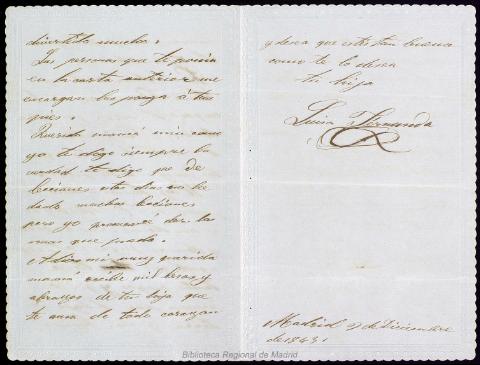 divertido mucho.
Las personas que te ponia
en la carta anterior me
encargan los ponga á tus
pies.
Querida mamá mia como
yo te digo siempre la
verdad te digo que de
lecciones estos dias no he
dado muchas lecciones
pero yo procuraré dar las
mas que pueda.
Adios mi muy querida
mamá recibe mil besos y
abrazos de tu hija que
te ama de todo corazon
y desea que estes tan buena
como te lo desea
tu hija
Luisa Fernanda
Madrid 9 de Diciembre
de 1843.
Biblioteca Regional de Madrid